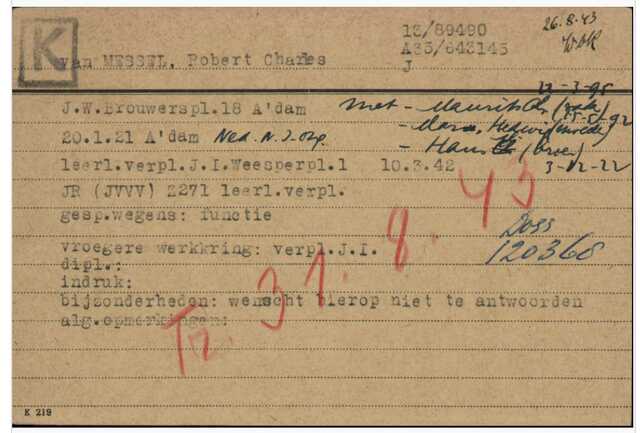 K
26.8.43
WbK
13/89490
A35/643145
J
van MESSEL, Robert Charles
J.W.Brouwerspl.18 A'dam
met - Maurits Ch. (vader) 12-3-95
20.1.21 A'dam Ned. N.J. ong.
Hedwig (moeder) 25-5-92
- Hans Ch (broer) 3-12-22
leerl.verpl.J.I.Weesperpl.1 10.3.42
JR (JVVV) Z271 leerl.verpl.
gesp.wegens: functie
Doss
120368
vroegere werkkring: verpl.J.I.
dipl.:
indruk:
bijzonderheden: wenscht hierop niet te antwoorden
alg.opmerkingen:
Tr. 31.8.43
K 219